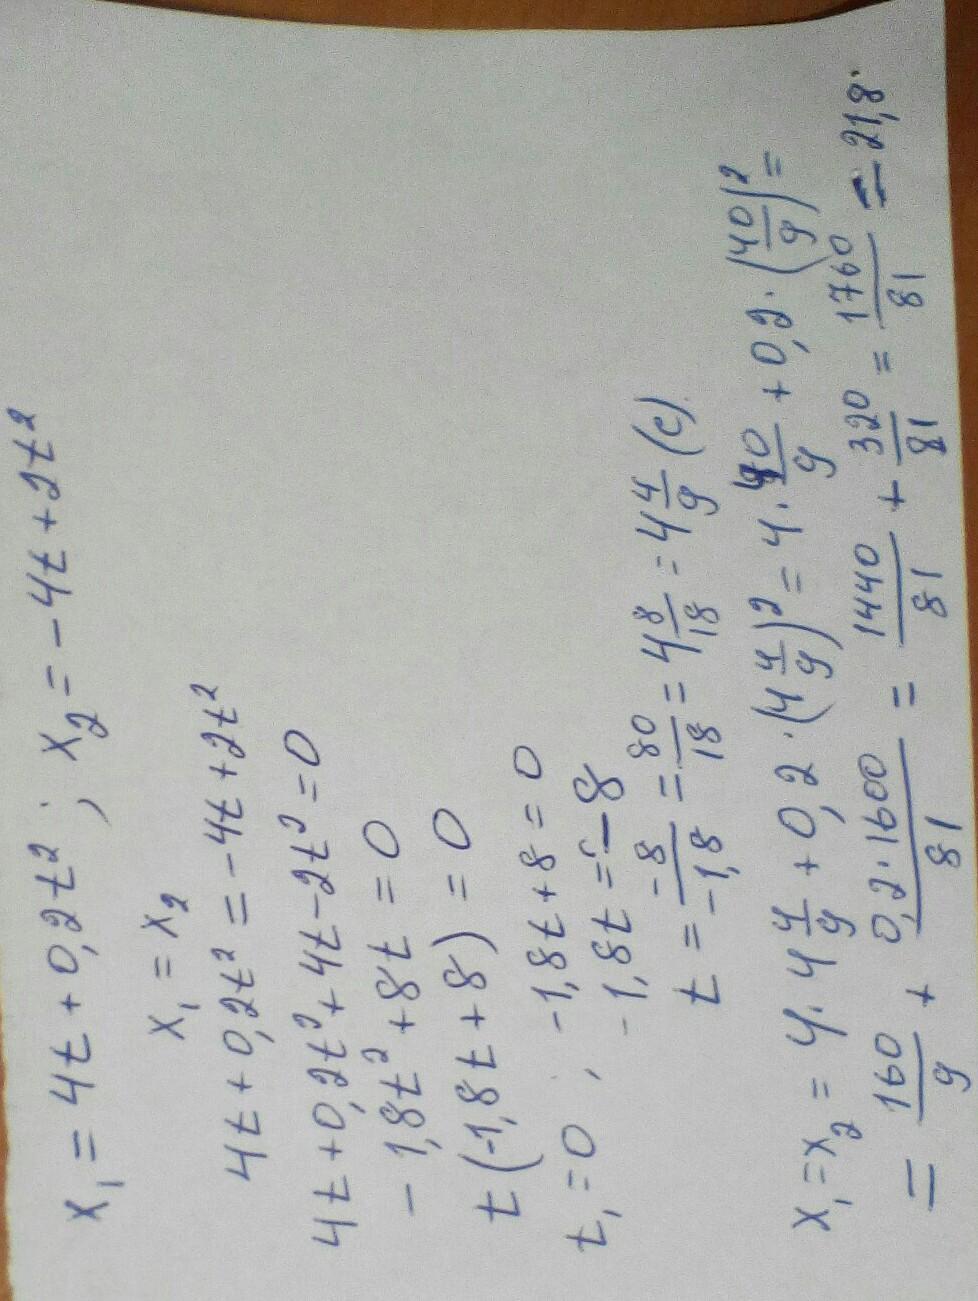 x₁ = 4t + 0,2t² ; x₂ = -4t + 2t²
x₁ = x₂
4t + 0,2t² = -4t + 2t²
4t + 0,2t² + 4t - 2t² = 0
- 1,8t² + 8t = 0
t (-1,8t + 8) = 0
t₁ = 0 ; -1,8t + 8 = 0
-1,8t = -8
t = -8/-1,8 = 80/18 = 4 8/18 = 4 4/9 (с)
x₁ = x₂ = 4 · 4 4/9 + 0,2 · (4 4/9)² = 4 · 40/9 + 0,2 · (40/9)² =
= 160/9 + 0,2·1600/81 = 1440/81 + 320/81 = 1760/81 = 21,8.